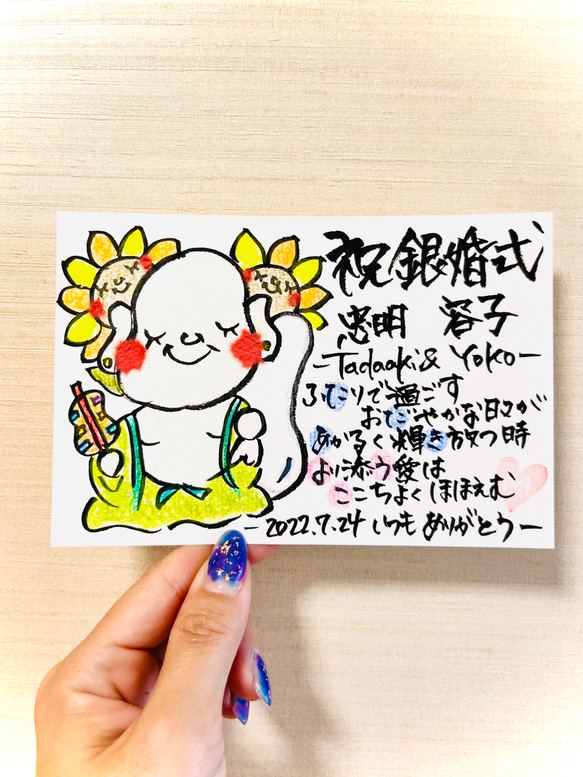 祝銀婚式
忠明 容子
-Tadaaki & Yoko-
ふたりで過ごす
おだやかな日々が
あかるく輝き放つ時
より添う愛は
ここちよくほほえむ
-2022.7.24 いつもありがとう-